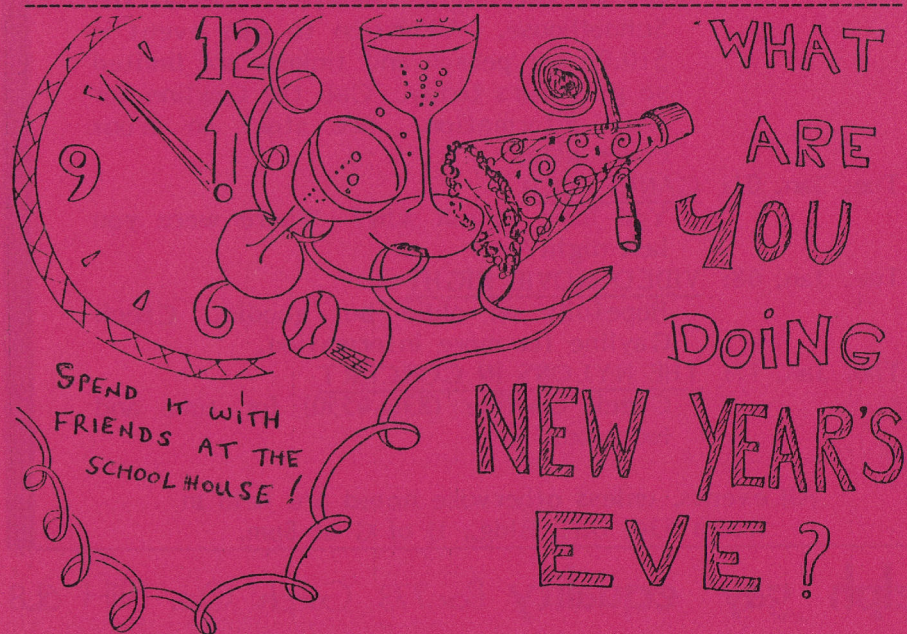 12
9
6
WHAT
ARE
YOU
DOiNG
NEW YEAR'S
EVE?
SPEND IT WiTH
FRIENDS AT THE
SCHOOLHOUSE!